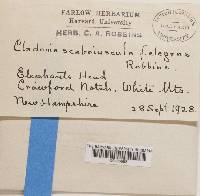 FARLOW HERBARIUM
Harvard University
HERB. C. A. ROBBINS
Cladonia scabriuscula f. elegans
Robbins.
Elephants Head
Crawford Notch, White Mts.
New Hampshire
28 Sept. 1928